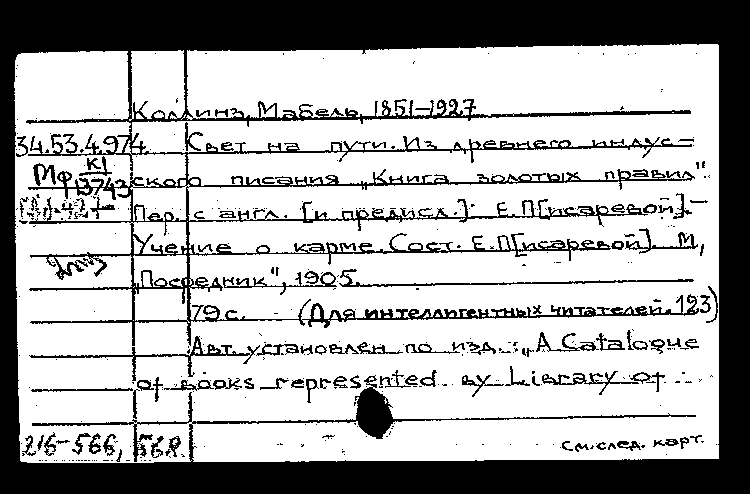 Коллинз, Мабель, 1851-1927
34.53.4.974 Свет на пути. Из древнего индус=
Мф К1 13743 ского писания „Книга золотых правил".
Пер. с англ. [и предисл.]: Е.П[исаревой].-
Учение о карме. Сост. Е.П[исаревой]. М,
„Посредник", 1905.
79 с. (Для интеллигентных читателей. 123)
Авт. установлен по изд.: „A Catalogue
of books represented by Library of
216-566, 568 См. след. карт.